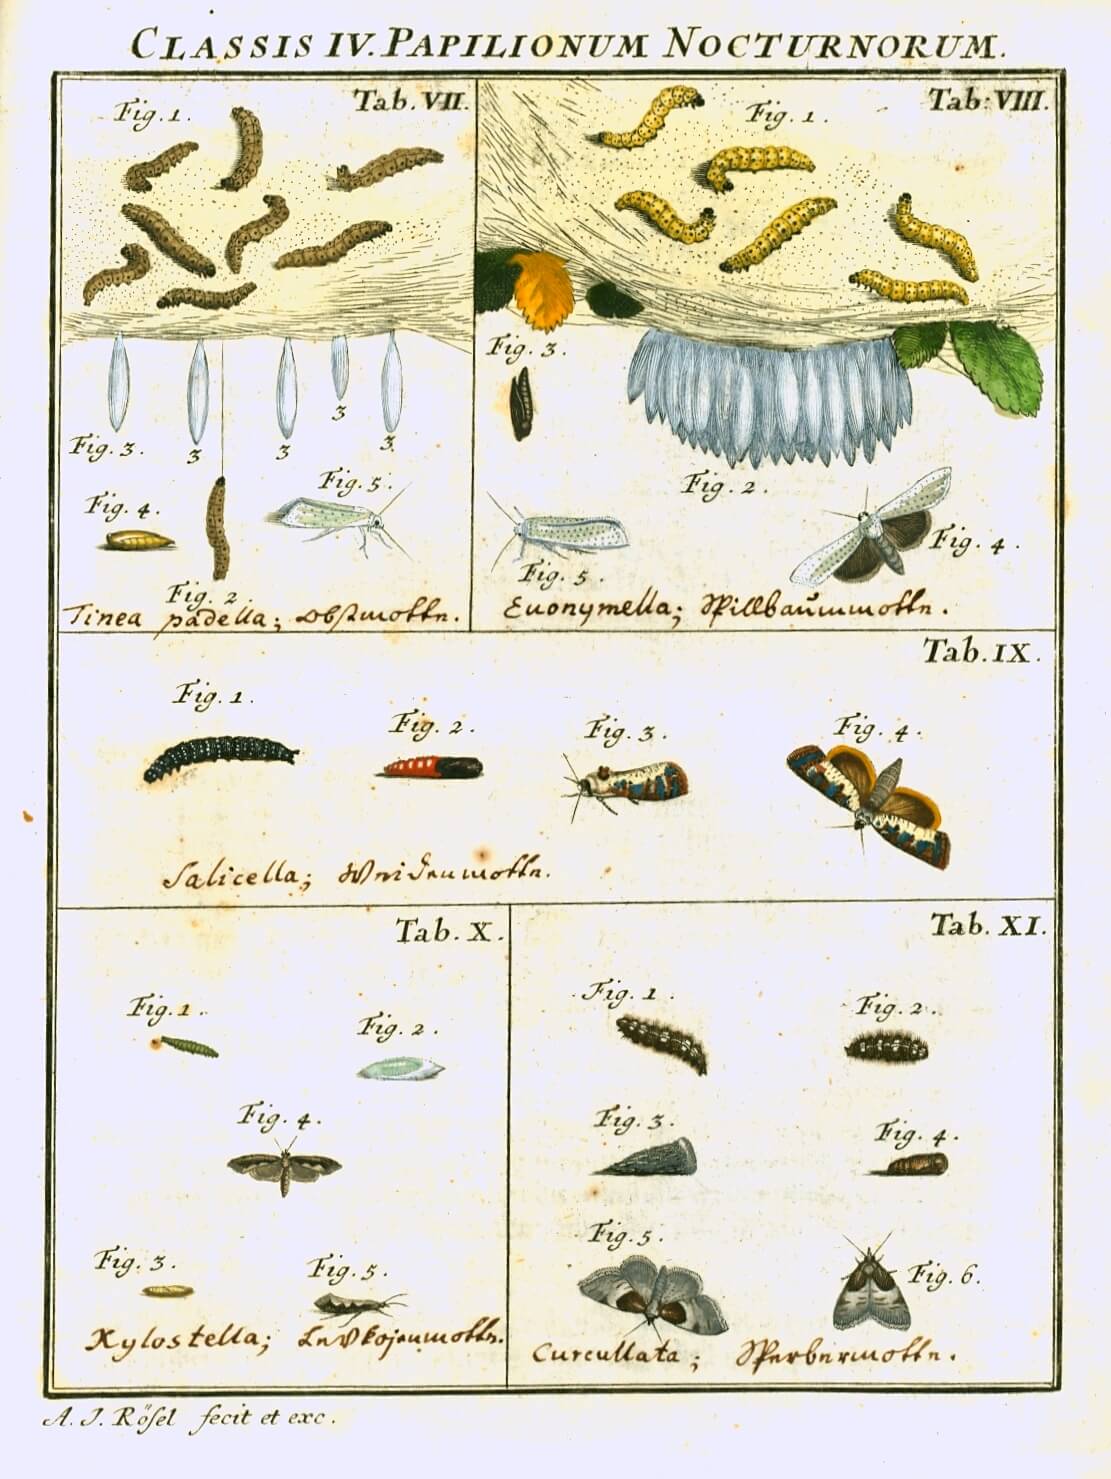 CLASSIS IV. PAPILIONUM NOCTURNORUM.
Tab. VII.
Fig. 1.
Fig. 3.
3
3
3
3.
Fig. 4.
Fig. 5.
Fig. 2.
Tinea padella; Obstmotte.
Tab: VIII.
Fig. 1.
Fig. 3.
Fig. 2.
Fig. 4.
Fig. 5.
Euonymella; Spillbaummotte.
Tab. IX.
Fig. 1.
Fig. 2.
Fig. 3.
Fig. 4.
Salicella; Weidenmotte.
Tab. X.
Fig. 1.
Fig. 2.
Fig. 4.
Fig. 3.
Fig. 5.
Xylostella; Levkojenmotte.
Tab. XI.
Fig. 1.
Fig. 2.
Fig. 3.
Fig. 4.
Fig. 5.
Fig. 6.
Curcullata; Sperbermotte.
A. J. Rösel fecit et exc.